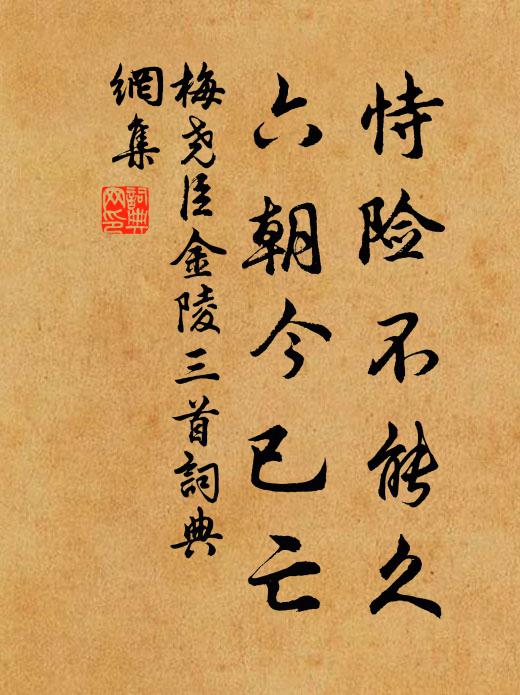 恃险不能久
六朝今已亡
梅尧臣金陵三首詞典
網集
詞典
网印